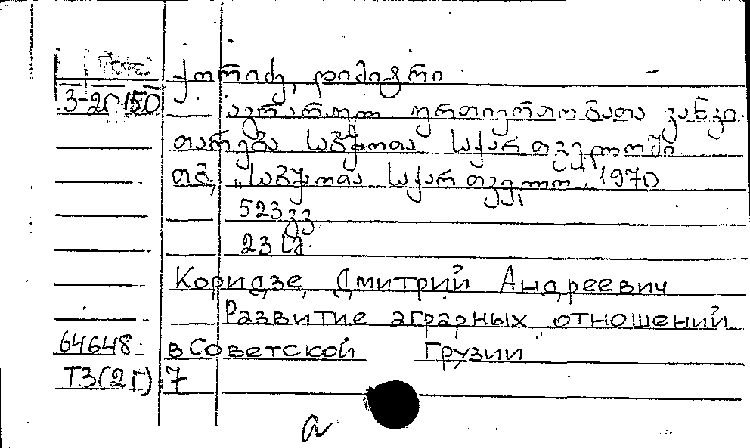 ქორიძე, დიმიტრი
3-20150 აგრარულ ურთიერთობათა განვი
თარება საბჭოთა საქართველოში
თბ., "საბჭოთა საქართველო", 1970
523 გვ
23 სმ.
Коридзе, Дмитрий Андреевич
Развитие аграрных отношений
64648 в Советской Грузии
ТЗ(2Г)7
a